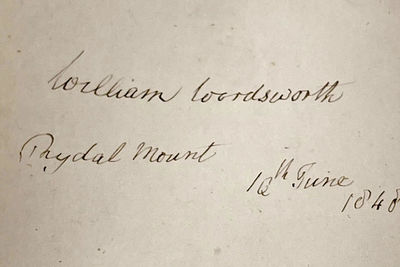 William Wordsworth
Rydal Mount
June
1848